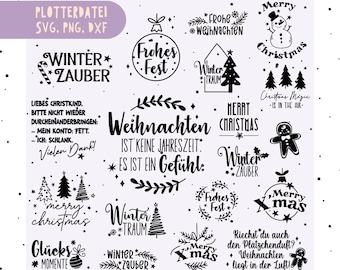 PLOTTERDATEI
SVG, PNG, DXF
WINTER
ZAUBER
Frohes
Fest
FROHE
WEIHNACHTEN
Merry
Christmas
Winter
TRAUM
Christmas Magic
IS IN THE AIR
LIEBES CHRISTKIND,
BITTE NICHT WIEDER
DURCHEINANDERBRINGEN:
– MEIN KONTO: FETT.
– ICH: SCHLANK.
Vielen Dank!
Weihnachten
IST KEINE JAHRESZEIT.
ES IST EIN
Gefühl.
MERRY
CHRISTMAS
Winter
ZAUBER
merry
christmas
Winter
TRAUM
Frohes
Fest
Merry
Xmas
Glücks
MOMENTE
WINTER
ZAUBER
Merry
Xmas
Riechst du auch
den Plätzchenduft?
Weihnachten
liegt in der Luft!